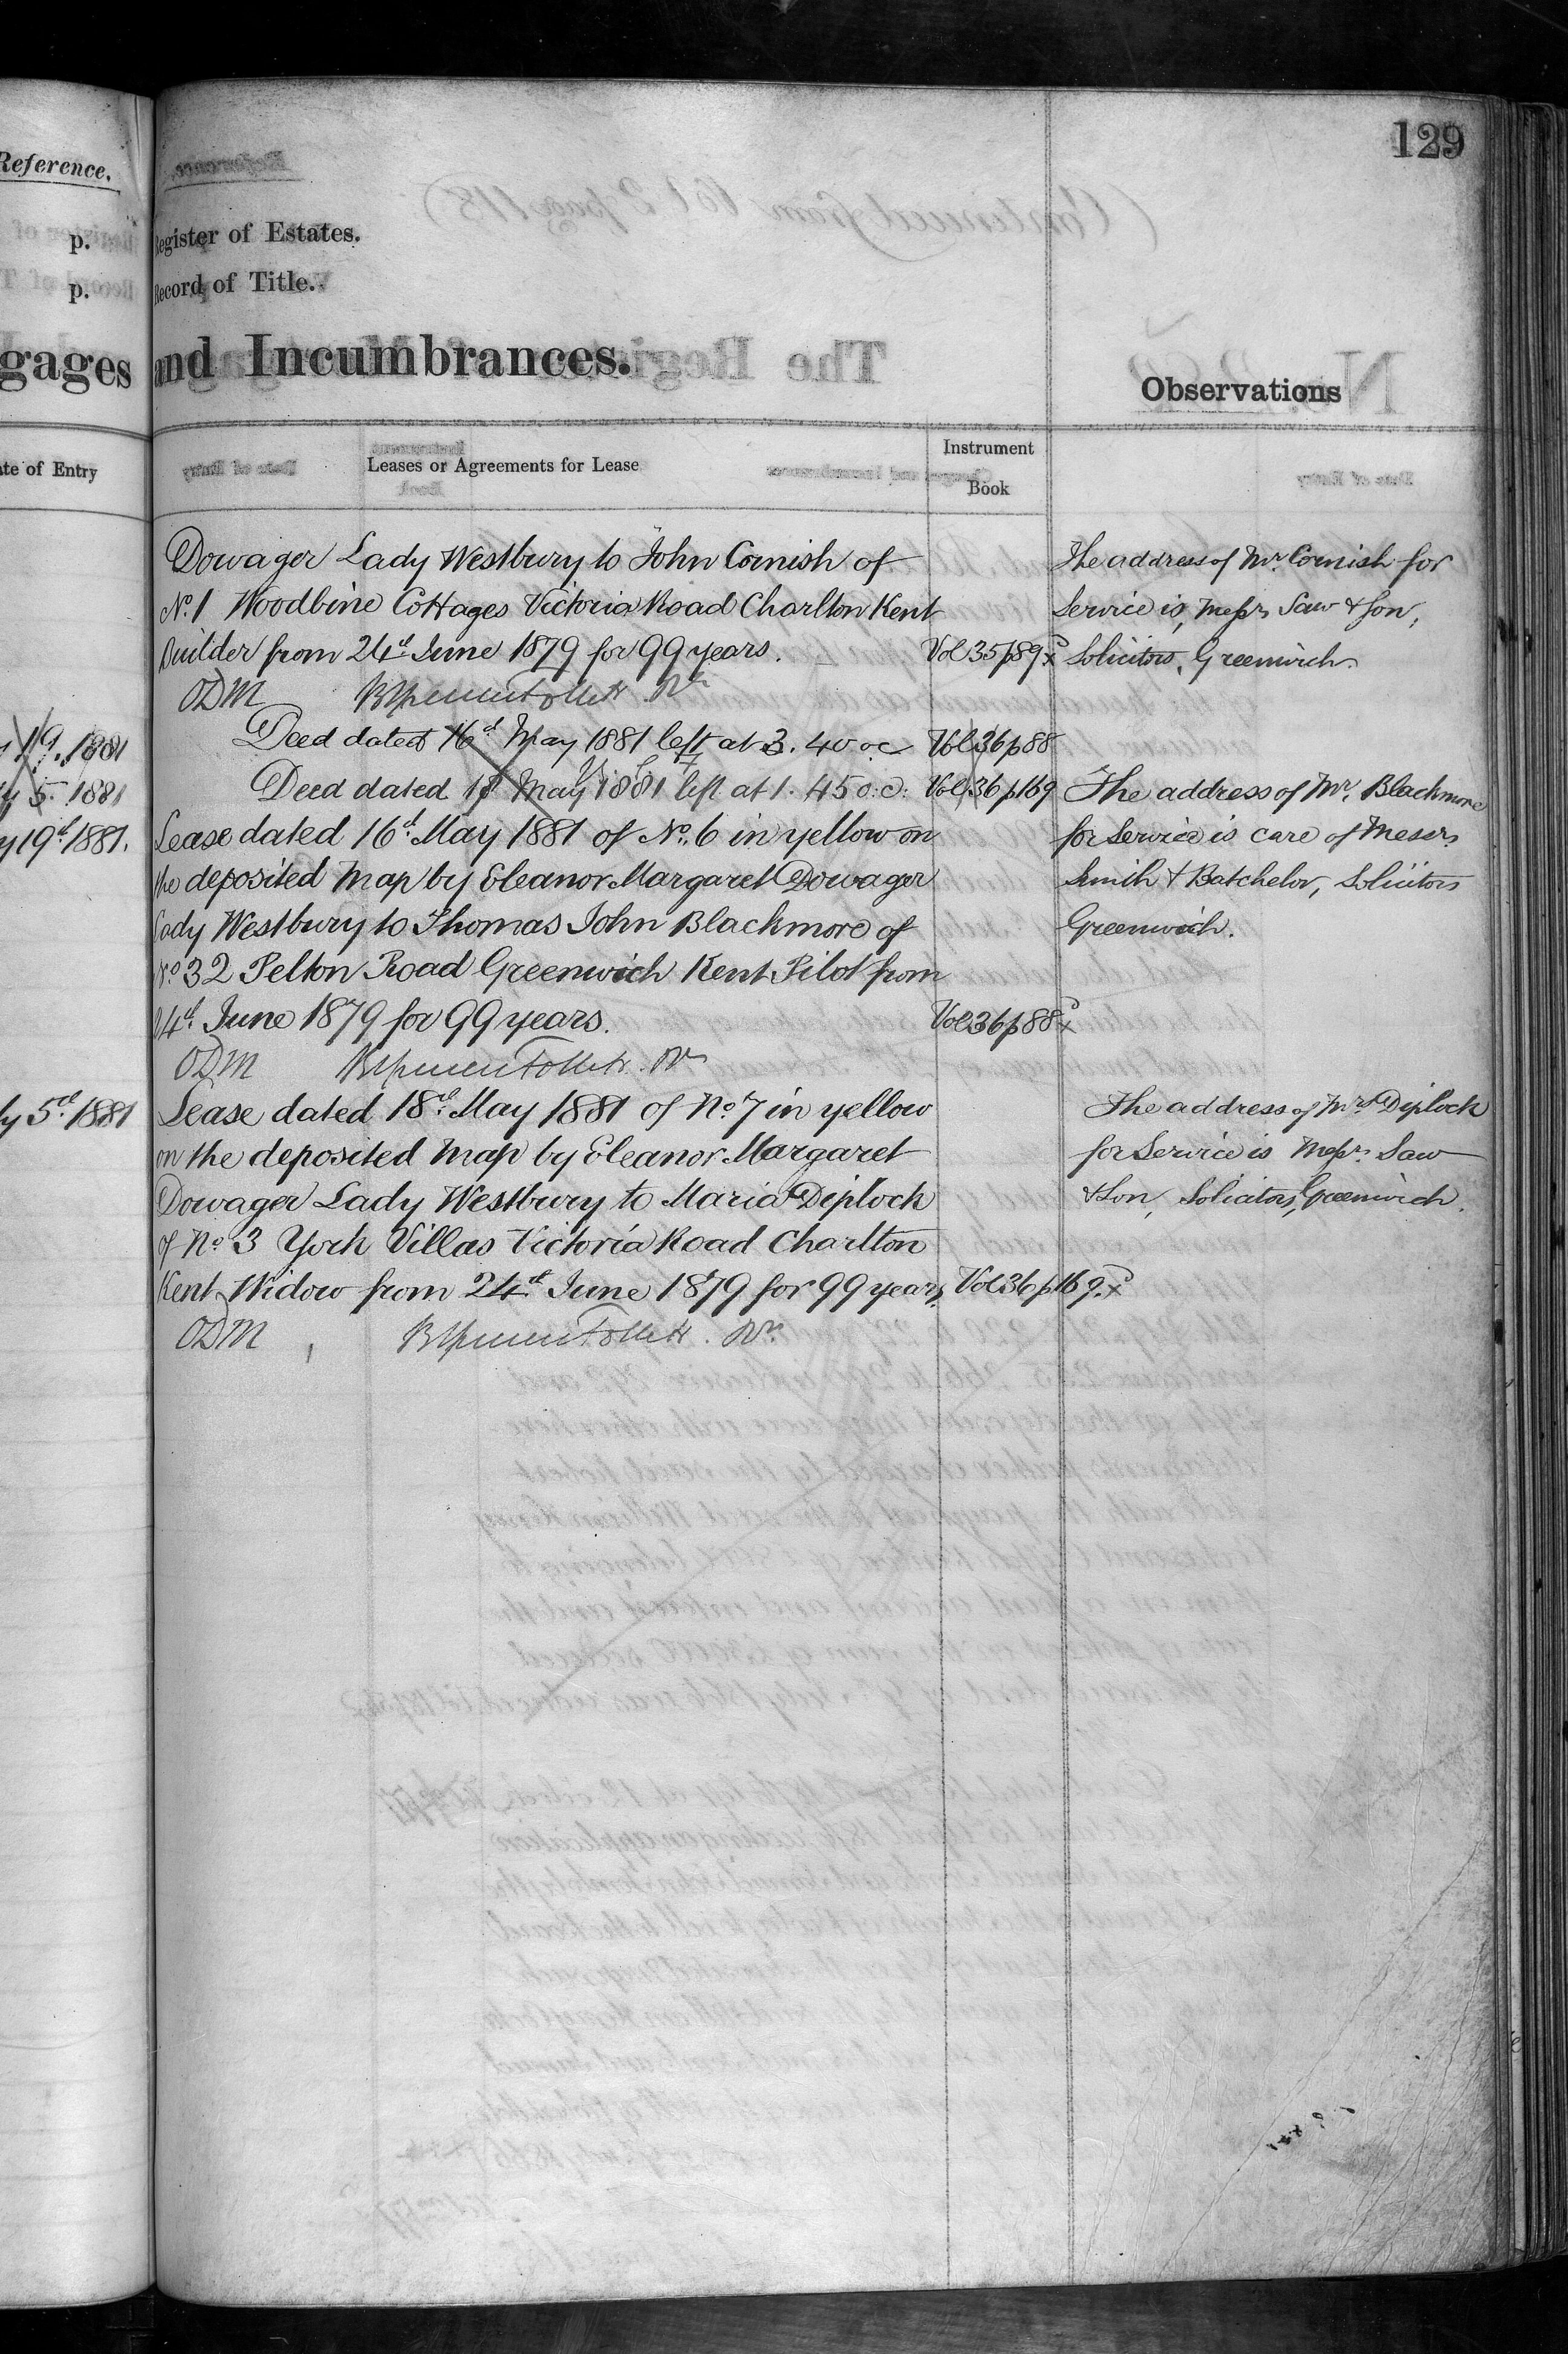 129
Reference.
p.
p.
gages
ate of Entry
19. 1881
5. 1881
y 19th 1881.
ly 5th 1881
Register of Estates.
Record of Title.
and Incumbrances.
Observations
Leases or Agreements for Lease
Instrument
Book
Dowager Lady Westbury to John Cornish of
No. 1 Woodbine Cottages Victoria Road Charlton Kent
Builder from 24th June 1879 for 99 years. Vol 35 p 89
ODM
Deed dated 16th May 1881 left at 3.40 oc Vol 36 p 88
Deed dated 18 May 1881 left at 1.45 o.c. Vol 36 p 169
Lease dated 16th May 1881 of No. 6 in yellow on
the deposited Map by Eleanor Margaret Dowager
Lady Westbury to Thomas John Blackmore of
No. 32 Pelton Road Greenwich Kent Pilot from
24th June 1879 for 99 years. Vol 36 p 88
ODM
Lease dated 18th May 1881 of No. 7 in yellow
on the deposited Map by Eleanor Margaret
Dowager Lady Westbury to Maria Diplock
of No. 3 York Villas Victoria Road Charlton
Kent Widow from 24th June 1879 for 99 years. Vol 36 p 169.
ODM
The address of Mr. Cornish for
Service is, Messrs Saw & Son,
Solicitors, Greenwich
The address of Mr. Blackmore
for Service is care of Messrs
Smith & Batchelor, Solicitors
Greenwich.
The address of Mrs Diplock
for Service is Messrs Saw
& Son, Solicitors, Greenwich.